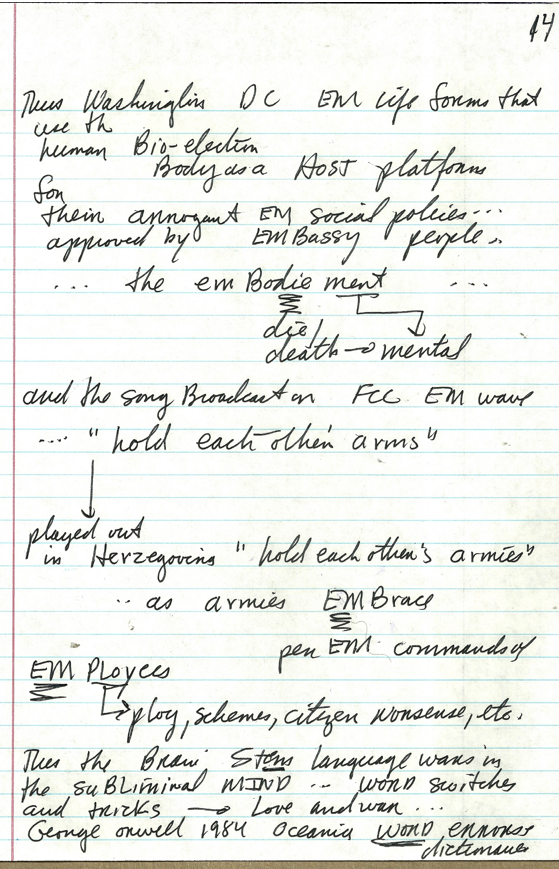 14
Thus Washington DC EM life forms that
use the
human Bio-electron
Body as a HOST platform
for
their arrogant EM social policies...
approved by EMBassy people..
... the em Bodie ment ...
die/
death → mental
and the song Broadcast on FCC EM wave
.... "hold each other arms"
played out
in Herzegovina "hold each other's armies"
.. as armies EMBrace
per EM commands of
EM Ployees
ploy, schemes, citizen nonsense, etc.
Thus the Brain Stem language wars in
the suBLiminal MIND ... WORD switches
and tricks → Love and war ...
George orwell 1984 Oceania WORD
dictionaries